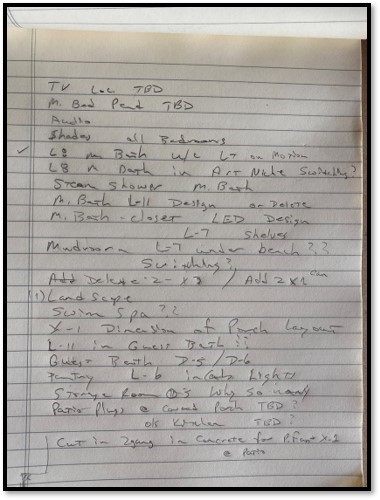 TV Loc TBD
M. Bed Pend TBD
Audio
Shades all Bedrooms
L8 m Bath w/c L7 on Motion
L8 M Bath in Art Niche Switching?
Steam Shower M. Bath
M. Bath L-11 Design or Delete
M. Bath - closet LED Design
L-7 Shelves
Mudroom L-7 under bench??
Switching?
Add Delete: 2- X3 / Add 2 X1 can
(1) Landscape
Swim Spa??
X-1 Dimension of Porch layout
L-11 in Guest Bath ??
Guest Bath D-5 / D-6
Pantry L-6 in Lights
Storage Room Why so many
Patio Plugs @ Covered Porch TBD?
Kitchen TBD?
Cut in 2gang in Concrete for X-2
@ Patio